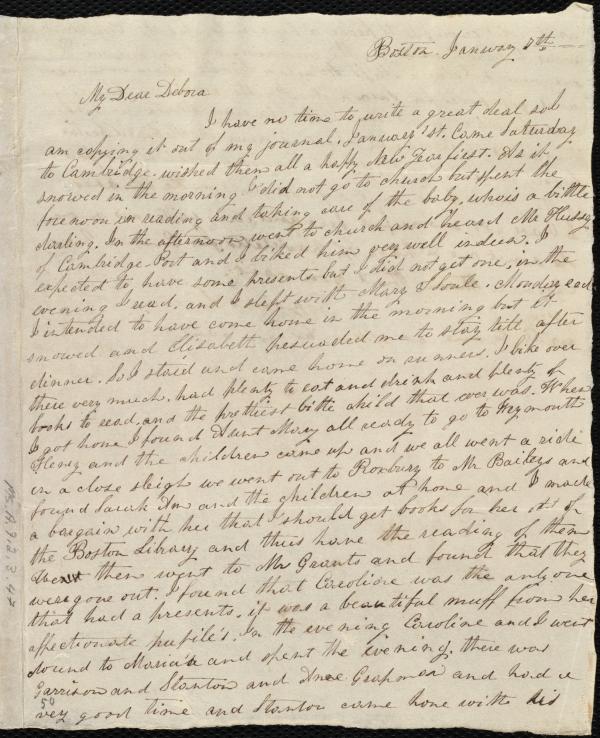 Boston January 7th
My Dear Debora
I have no time to write a great deal so I
am copying it out of my journal. January 1st. Came Saturday
to Cambridge. wished them all a happy New Year first. As it
snowed in the morning I did not go to church but spent the
forenoon in reading and taking care of the baby, who is a little
darling. In the afternoon went to church and heard Mr Hussey
of Cambridge-Port and I liked him very well indeed. I
expected to have some presents but I did not get one, in the
evening I read, and I slept with Mary T Soule. Monday 2nd
I intended to have come home in the morning but it
snowed and Elisabeth persuaded me to stay till after
dinner. So I staid and came home on runners. I like over
there very much, had plenty to eat and drink and plenty of
books to read, and the prettiest little child that ever was. When
I got home I found Aunt Mary all ready to go to Weymouth
Henry and the children came up and we all went a ride
in a close sleigh we went out to Roxbury to Mr Baileys and
found Sarah Ann and the children at home and I made
a bargain with her that I should get books for her out of
the Boston Library and thus have the reading of them
then went to Mr Grants and found that they
were gone out. I found that Caroline was the only one
that had a presents, it was a beautiful muff from her
affectionate pupils. In the evening Caroline and I went
round to Maria's and spent the evening. there was
Garrison and Stanton and Ann and had a
very good time and Stanton came home with his
50
Ms.A.9.2.3.4